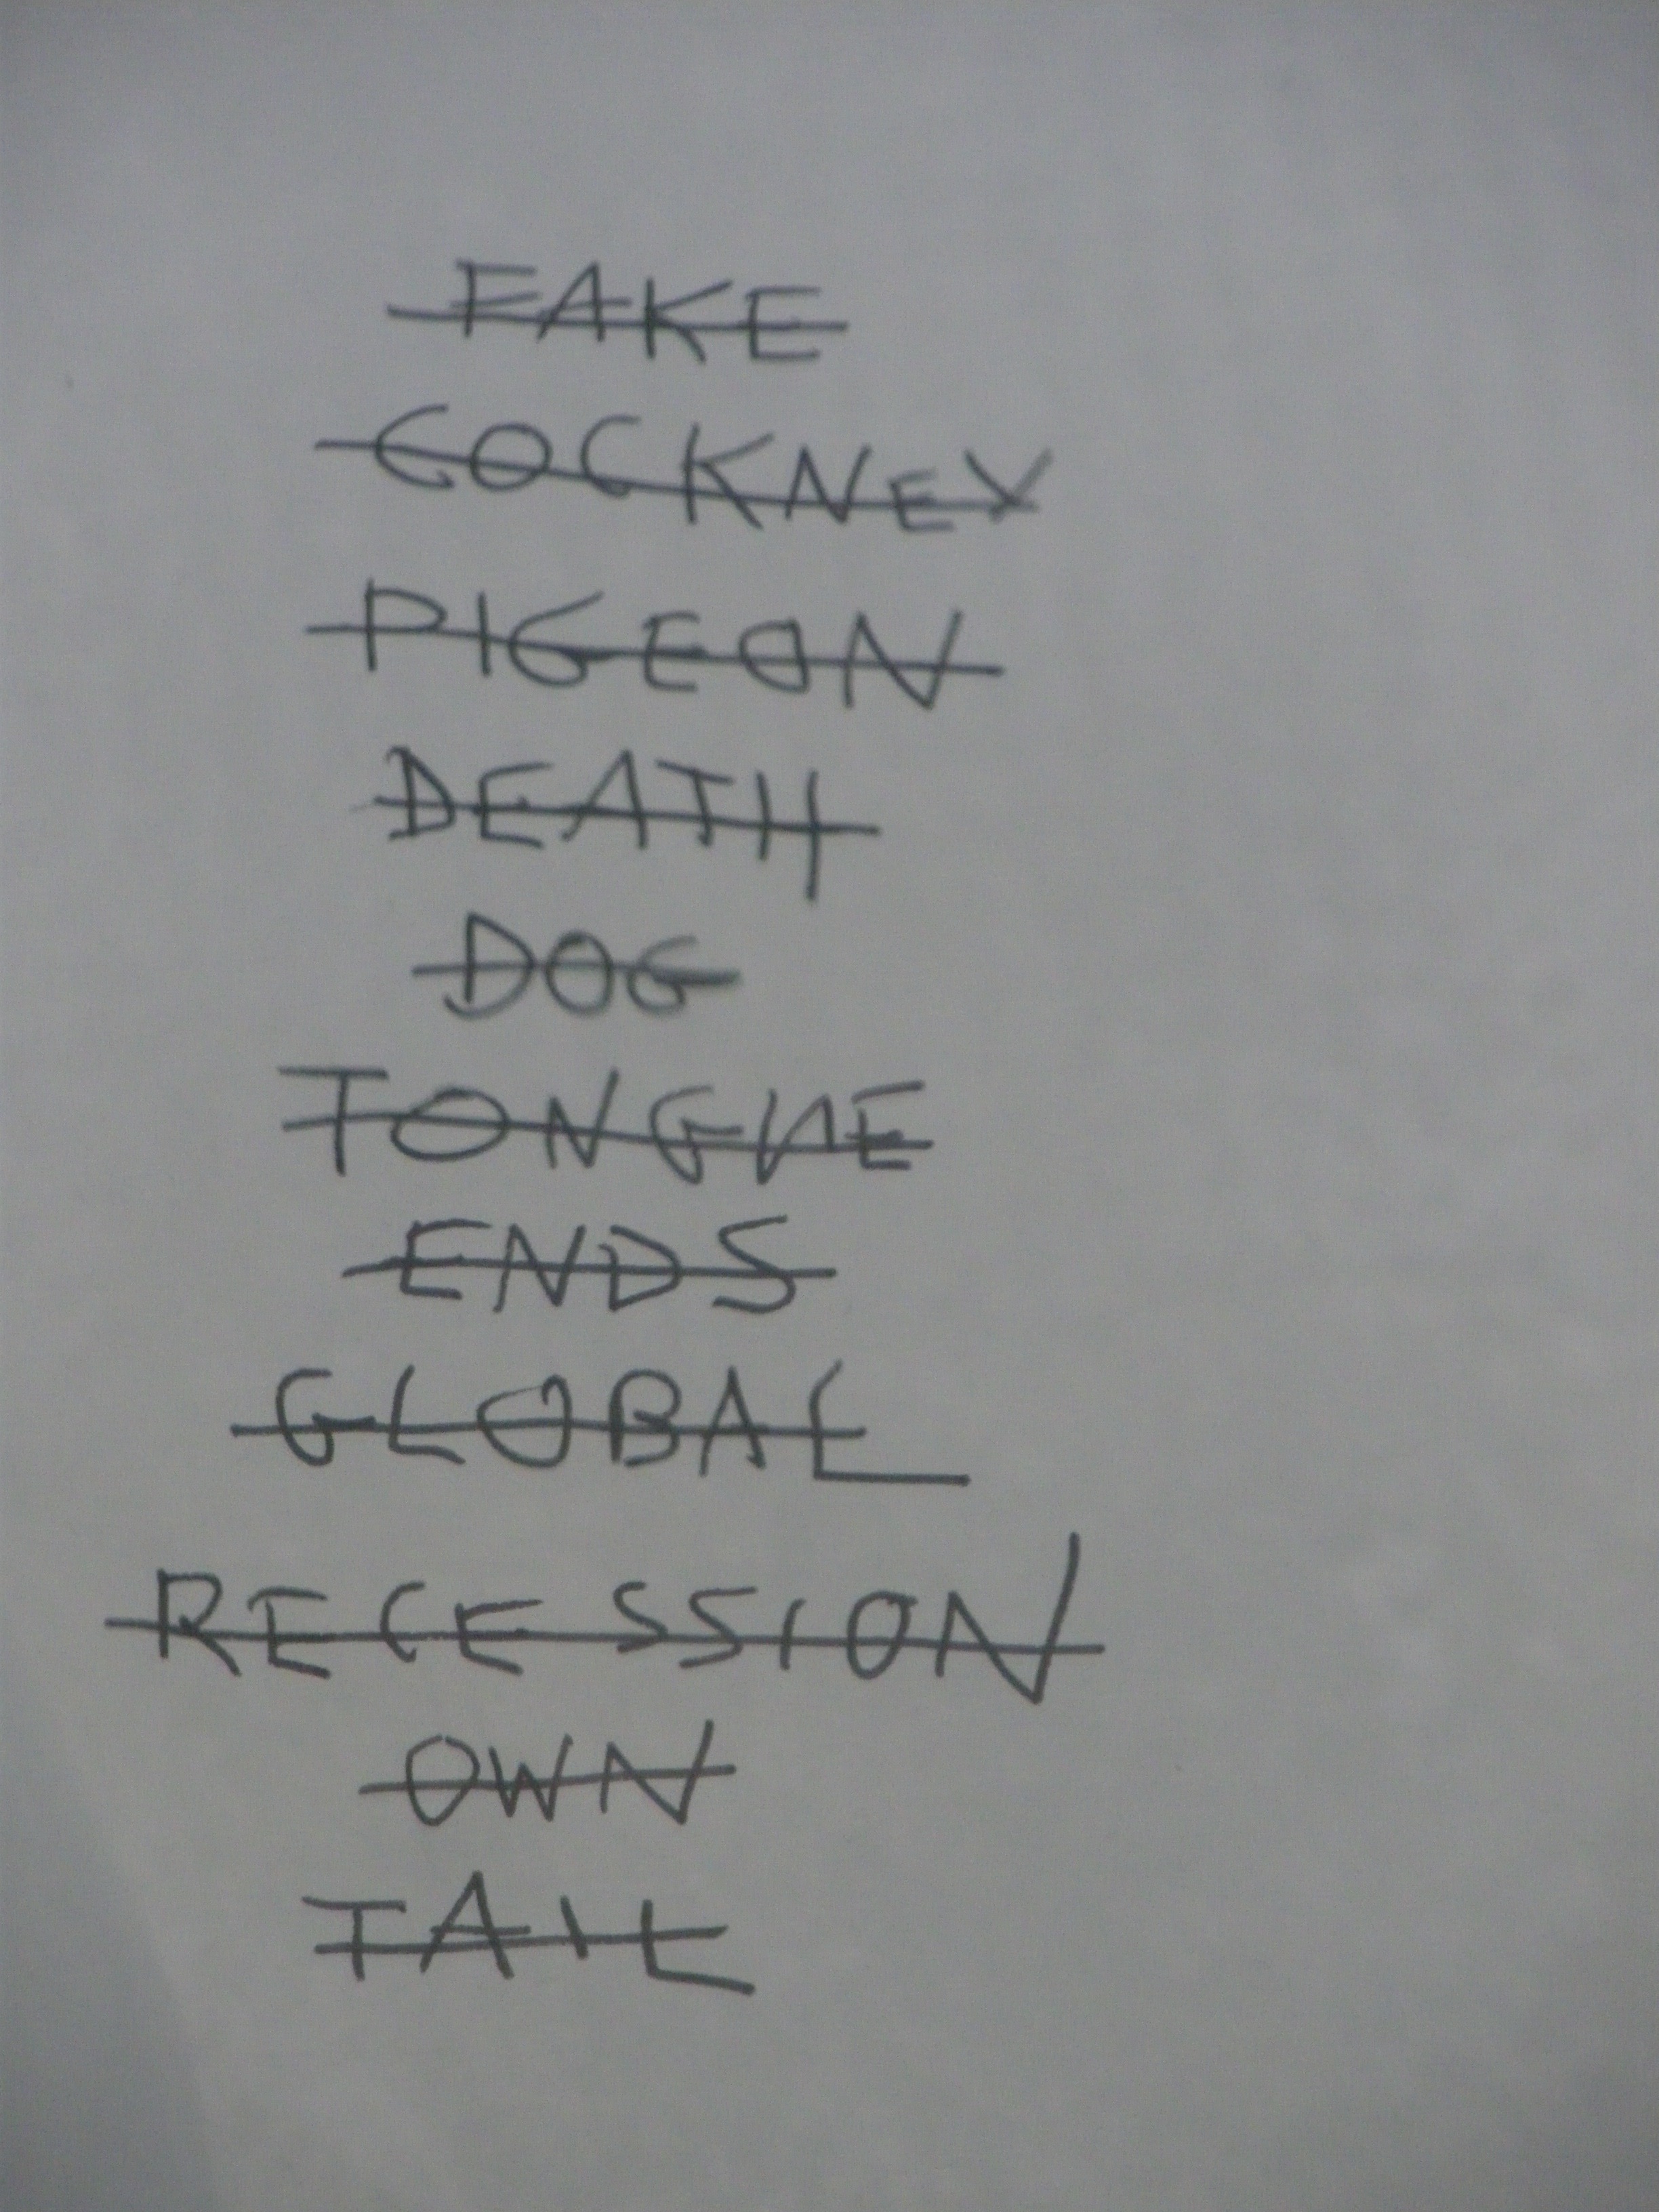 FAKE
COCKNEY
PIGEON
DEATH
DOG
TONGUE
ENDS
GLOBAL
RECESSION
OWN
TAIL